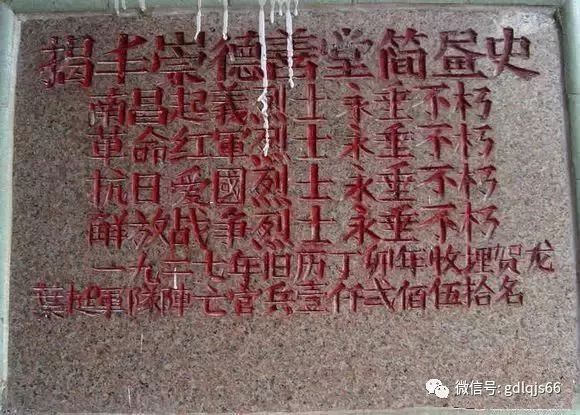 揭丰崇德善堂简昼史
南昌起義烈士永垂不朽
革命红軍烈士永垂不朽
抗日爱國烈士永垂不朽
解放战争烈士永垂不朽
一九二七年旧历丁卯年收埋贺龙
葉挺軍隊陣亡官兵壹仟弍佰伍拾名
微信号: gdlqjs66